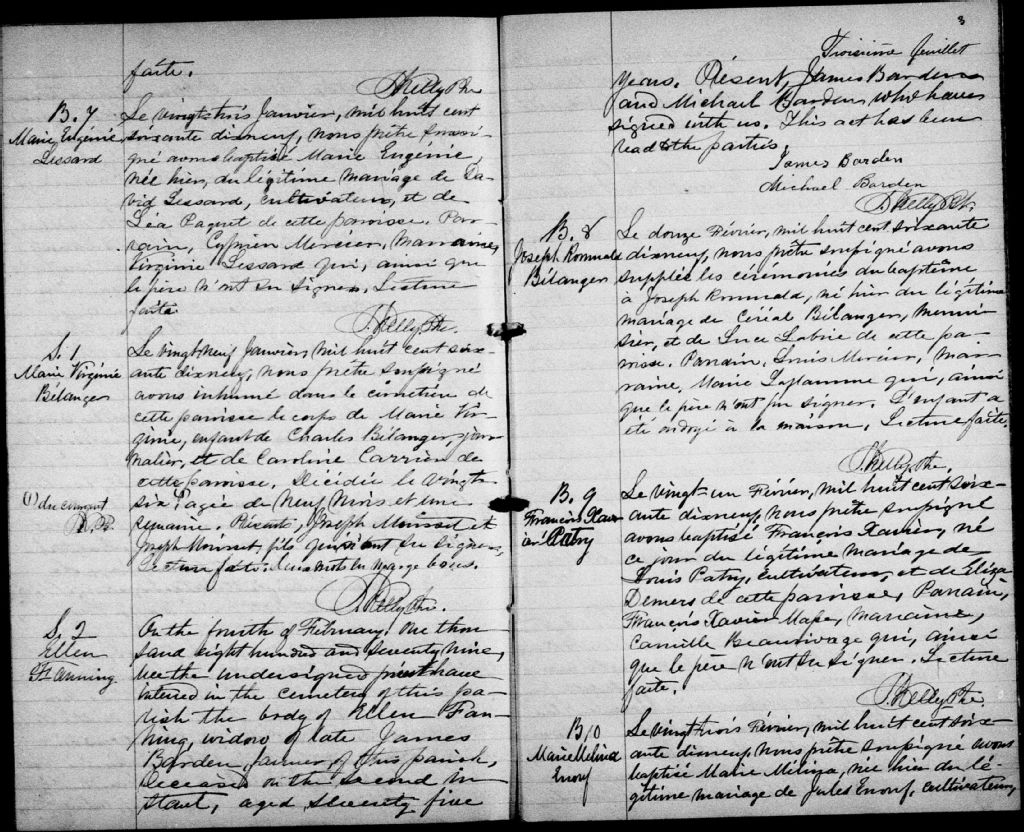 faite.
D. Kelly Ptre
B. 7
Marie Eugénie
Lessard
Le vingt-trois Janvier, mil huit cent
soixante dixneuf, nous prêtre soussi-
gné avons baptisé Marie Eugénie,
née hier, du légitime mariage de Da-
vid Lessard, cultivateur, et de
Léa Paquet de cette paroisse. Par-
rain, Mercier, Marraine,
Virginie Lessard qui, ainsi que
le père n'ont su signer. Lecture
faite
D. Kelly Ptre.
S. 1
Marie Virginie
Bélanger
Le vingt-neuf Janvier, mil huit cent soix-
ante dixneuf, nous prêtre soussigné
avons inhumé dans le cimetière de
cette paroisse le corps de Marie Vir-
ginie, enfant de Charles Bélanger, jour-
nalier, et de Caroline Carrier de
cette paroisse. Décédée le vingt-
six (1) agée de neuf mois et une
semaine. Présents, Joseph et
Joseph fils qui n'ont su signer.
Lecture faite. mots en marge bons.
(1) du courant
D. K.
D. Kelly Ptre.
S. 2
Ellen
Fanning
On the fourth of February, one thou
sand eight hundred and seventy nine,
we the undersigned priest have
interred in the cemetery of this pa-
rish the body of Ellen Fan-
ning, widow of late James
Barden farmer of this parish,
deceased on the second in
stant, aged seventy five
3
Troisième feuillet
years. Présent, James Barden
and Michael Barden who have
signed with us. This act has been
read to the parties.
James Barden
Michael Barden
D. Kelly Pt.
B. 8
Joseph Romuald
Bélanger
Le douze Février, mil huit cent soixante
dixneuf, nous prêtre soussigné avons
supplée les cérémonies du baptême
à Joseph Romuald, né hier du légitime
mariage de Bélanger, menui-
sier, et de Luce Labrie de cette pa-
roisse. Parrain, Louis Mercier, Mar-
raine, Marie Laflamme qui, ainsi
que le père n'ont pu signer. L'enfant a
été ondoyé à la maison. Lecture faite.
D. Kelly Ptre.
B. 9
François Xav-
ier Patry
Le vingt-un Février, mil huit cent soix-
ante dixneuf, nous prêtre soussigné
avons baptisé François Xavier, né
ce jour du légitime mariage de
Louis Patry, cultivateur, et de Eliza
Demers de cette paroisse, Parrain,
François Xavier Marraine,
Camille Beaurivage qui, ainsi
que le père n'ont su signer. Lecture
faite.
D. Kelly Ptre.
B. 10
Marie Melina
Enouf
Le vingt-trois Février, mil huit cent soix-
ante dixneuf, nous prêtre soussigné avons
baptisé Marie Mélina, née hier du lé-
gitime mariage de Jules Enouf, cultivateur,